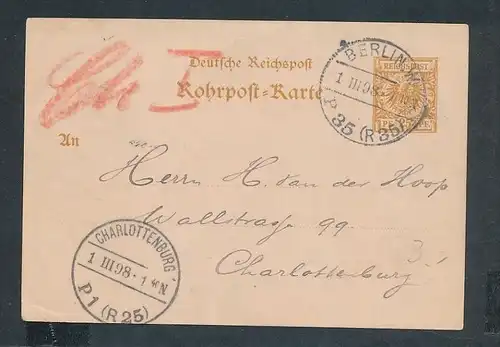 Deutsche Reichspost
Rohrpost-Karte
REICHSPOST
BERLIN
1 III 98
P 35 (R 35)
An
Herrn H. van der Hoop
Wallstrasse 99.
Charlottenburg
CHARLOTTENBURG
1 III 98 · 1 N
P 1 (R 25)